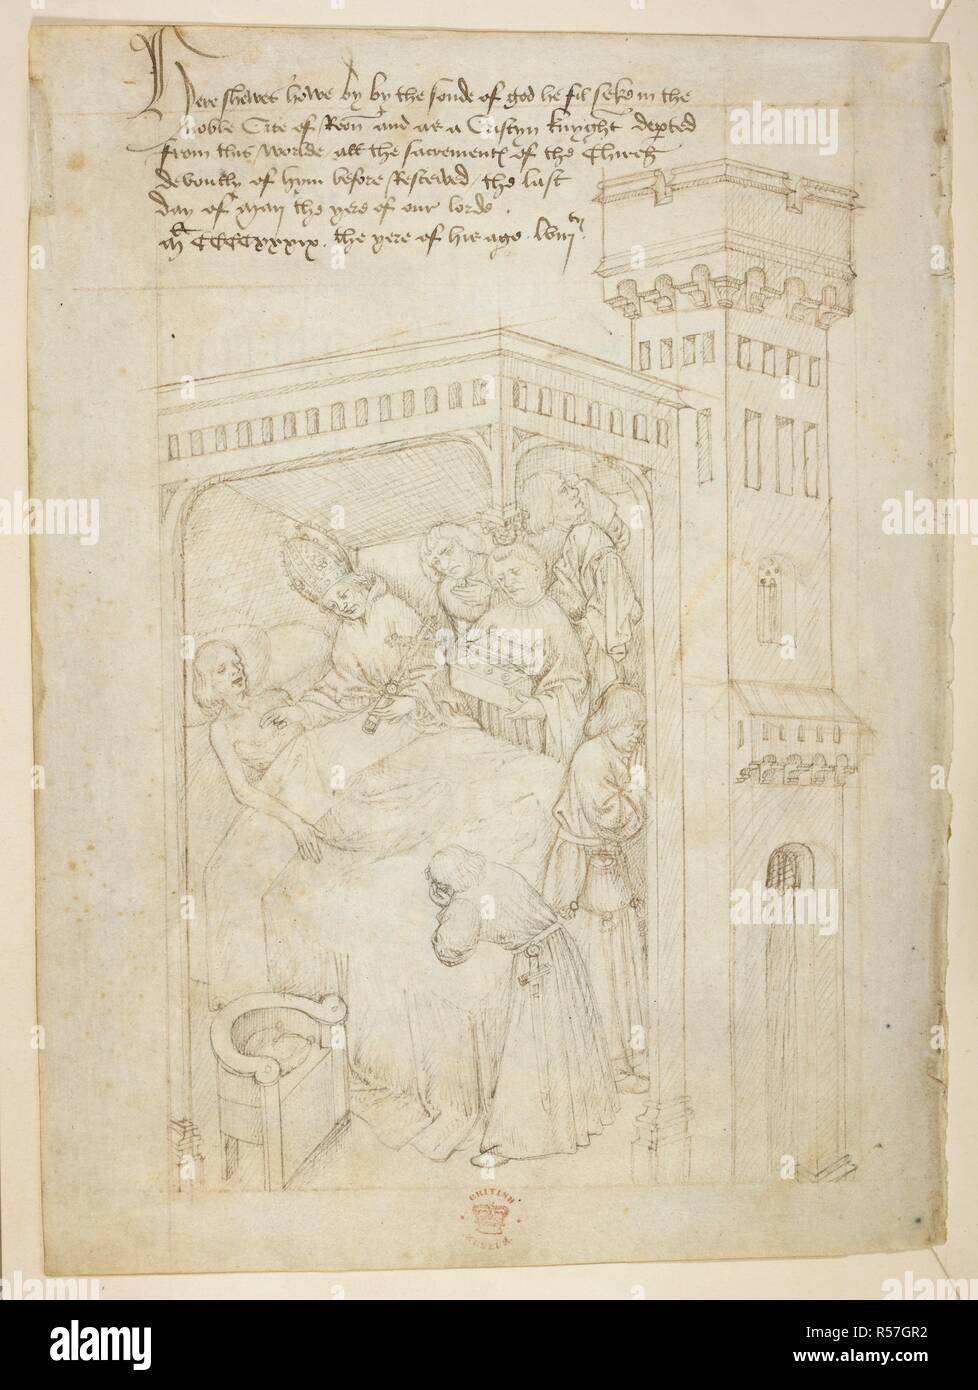 Here shewes howe by by the sonde of god he fil seke in the
noble Cite of Reon and as a Cristyn knyght depted
from this worlde all the sacrement of the Chirch
devoutly of hym before Resceived the last
day of Maij the yere of our lorde .
M CCCCxxxix . the yere of his age . lviij
BRITISH
MUSEUM
alamy
alamy
Image ID: R57GR2
www.alamy.com